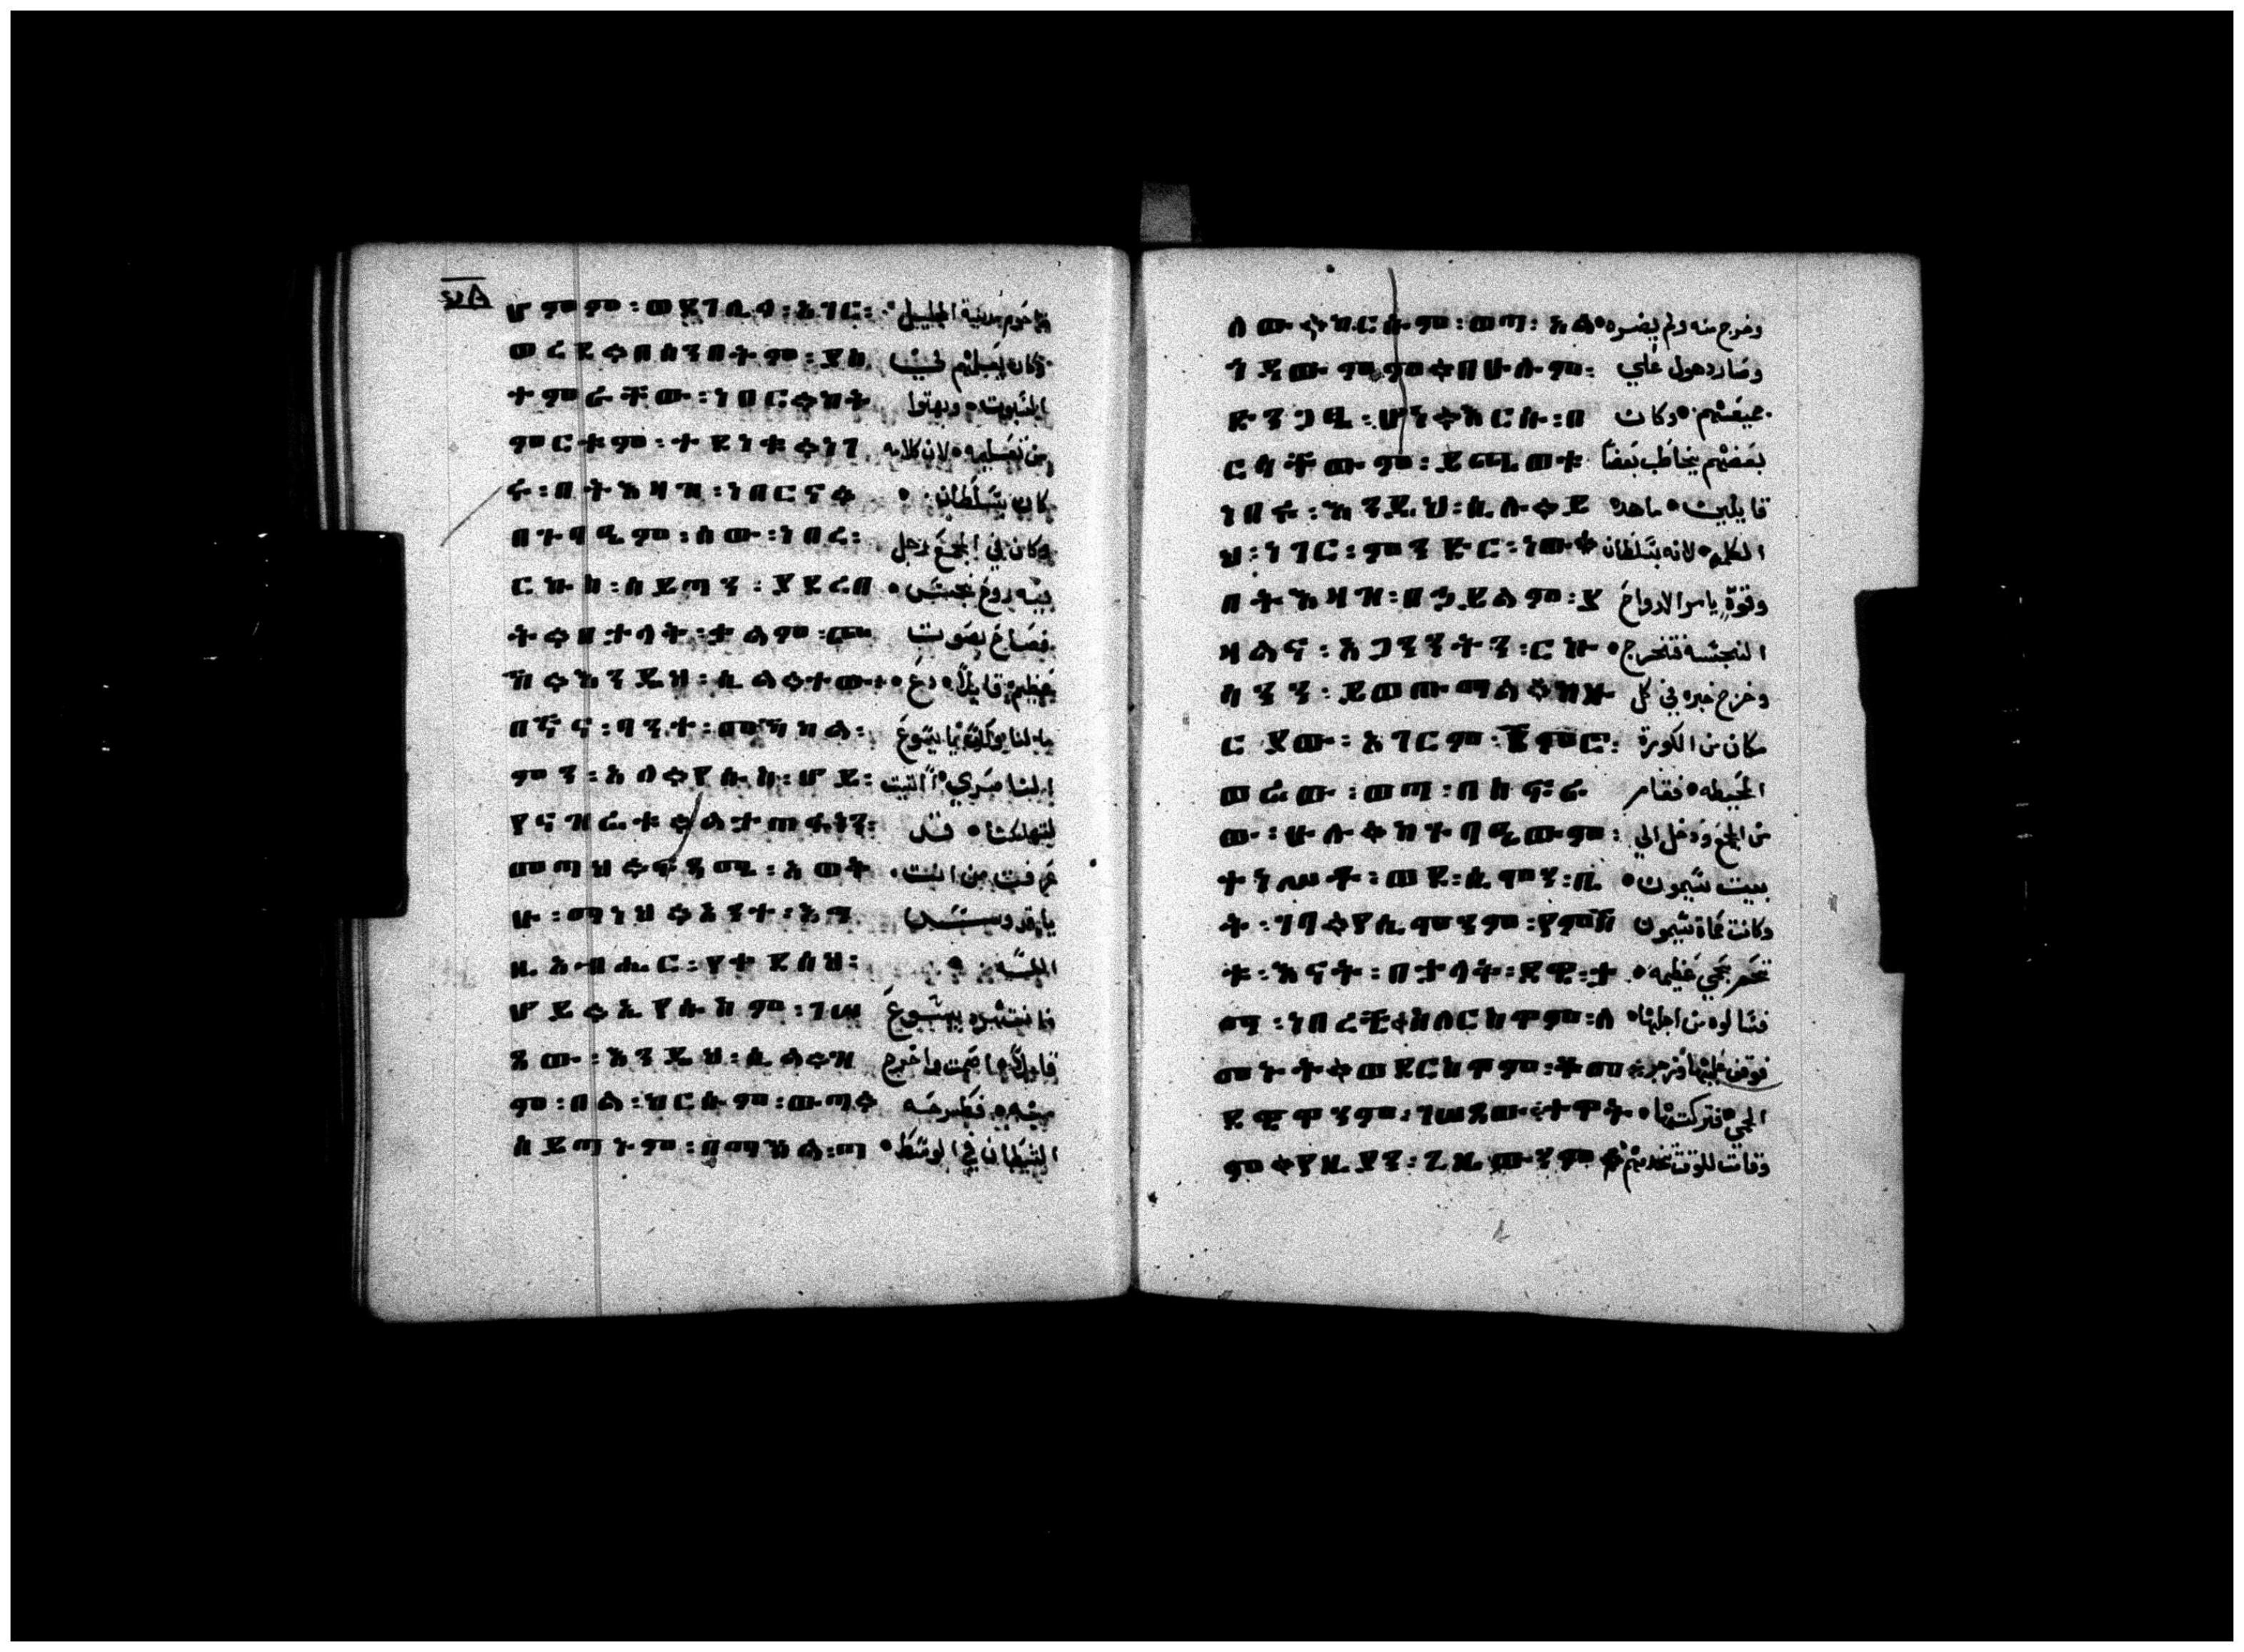 ሆምም ፡ ወደገሊላ ፡ አገር ፡ ناحوم مدينة الجليل
ወረደ ። በሰንበትም ፡ ያስ وكان يعلمهم في
ተምራቸው ፡ ነበር ። ከት السبوت • وبهتوا
ምርቱም ፡ ተደነቁ ። ነገ من تعليمه • لان كلامه
ሩ ፡ በትእዛዝ ፡ ነበርና ። كان بسلطان •
በጉባዔም ፡ ሰው ፡ ነበረ ፡ وكان في المجمع رجل
ርኩስ ፡ ሰይጣን ፡ ያደረበ فيه روح نجس •
ት ። በታላቅ ፡ ቃልም ፡ ጮ فصاح بصوت
ኸ ። እንዲህ ፡ ሲል ። ተው ። عظيم قايلا • دع
በኛና ፡ ባንተ ፡ መኻከል ፡ يا يسوع
ምን ፡ አለ ። የሱስ ፡ ሆይ ፡ الناصري • اتيت
የናዝሬቱ ። ልታጠፋን ፡ لتهلكنا • قد
መጣህ ። አወቅ عرفت من انت •
ሁ ፡ ማነህ ። አንተ ፡ እግ يا قدوس
ዚአብሔር ፡ የተቀደሰህ ፡ الله •
ሆይ ። ኢየሱስም ፡ ገሠ فانتهره يسوع
ጸው ፡ እንዲህ ፡ ሲል ። ዝ قايلا اصمت واخرج
ም ፡ በል ፡ ከርሱም ፡ ውጣ ። منه • فطرحه
ሰይጣኑም ፡ በማኻል ፡ ጣ الشيطان في الوسط •
ለው ። ከርሱም ፡ ወጣ ፡ አል وخرج منه ولم يضره •
በሁሉም ፡ وصار هول علي
ድንጋፄ ፡ ሆነ ። እርሱ ፡ በ جميعهم • وكان
ርሳቸውም ፡ ይጫወቱ بعضهم يخاطب بعضا
ነበሩ ፡ እንዲህ ፡ ሲሉ ። ይ قايلين • ما هذه
ህ ፡ ነገር ፡ ምንድር ፡ ነው ። الكلمه • لانه بسلطان
በትእዛዝ ፡ በኃይልም ፡ ያ وقوة يامر الارواح
ዛልና ፡ አጋንንትን ፡ ርኩ النجسه فتخرج •
ሳንን ፡ وخرج خبره في كل
አገርም ፡ مكان من الكورة
ወሬው ፡ ወጣ ፡ المحيطه • فقام
ው ፡ ሁሉ ። ከጉባዔውም ፡ من المجمع ودخل الي
ወደ ፡ ሲምን ፡ ቤ بيت سيمون •
ት ፡ ገባ ። የሲምንም ፡ وكانت حماة سيمون
ቱ ፡ እናት ፡ በታላቅ ፡ ደዌ ፡ ت بحمي عظيمه •
ነበረች ። ስለርስዋም ፡ ለ فسالوه من اجلها •
መኑት ። ወደርስዋም ፡ ቆመ ። فوقف عليها وزجر
ደዌዋንም ፡ ገሠጸው ። ተዋት الحمي • فتركتها •
ም ። የዚያን ፡ ጊዜውንም ። وقامت للوقت تخدمهم